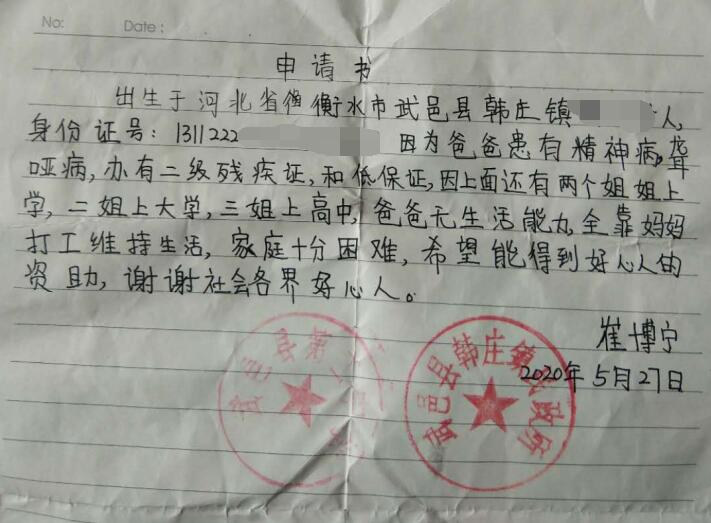 No:
Date:
申请书
出生于河北省衡水市武邑县韩庄镇 人,
身份证号:1311222 因为爸爸患有精神病,聋
哑病,办有二级残疾证,和低保证,因上面还有两个姐姐上
学,二姐上大学,三姐上高中,爸爸无生活能力,全靠妈妈
打工维持生活,家庭十分困难,希望能得到好心人的
资助,谢谢社会各界好心人。
崔博宁
2020年5月27日
武邑县第
武邑县韩庄镇人民政府